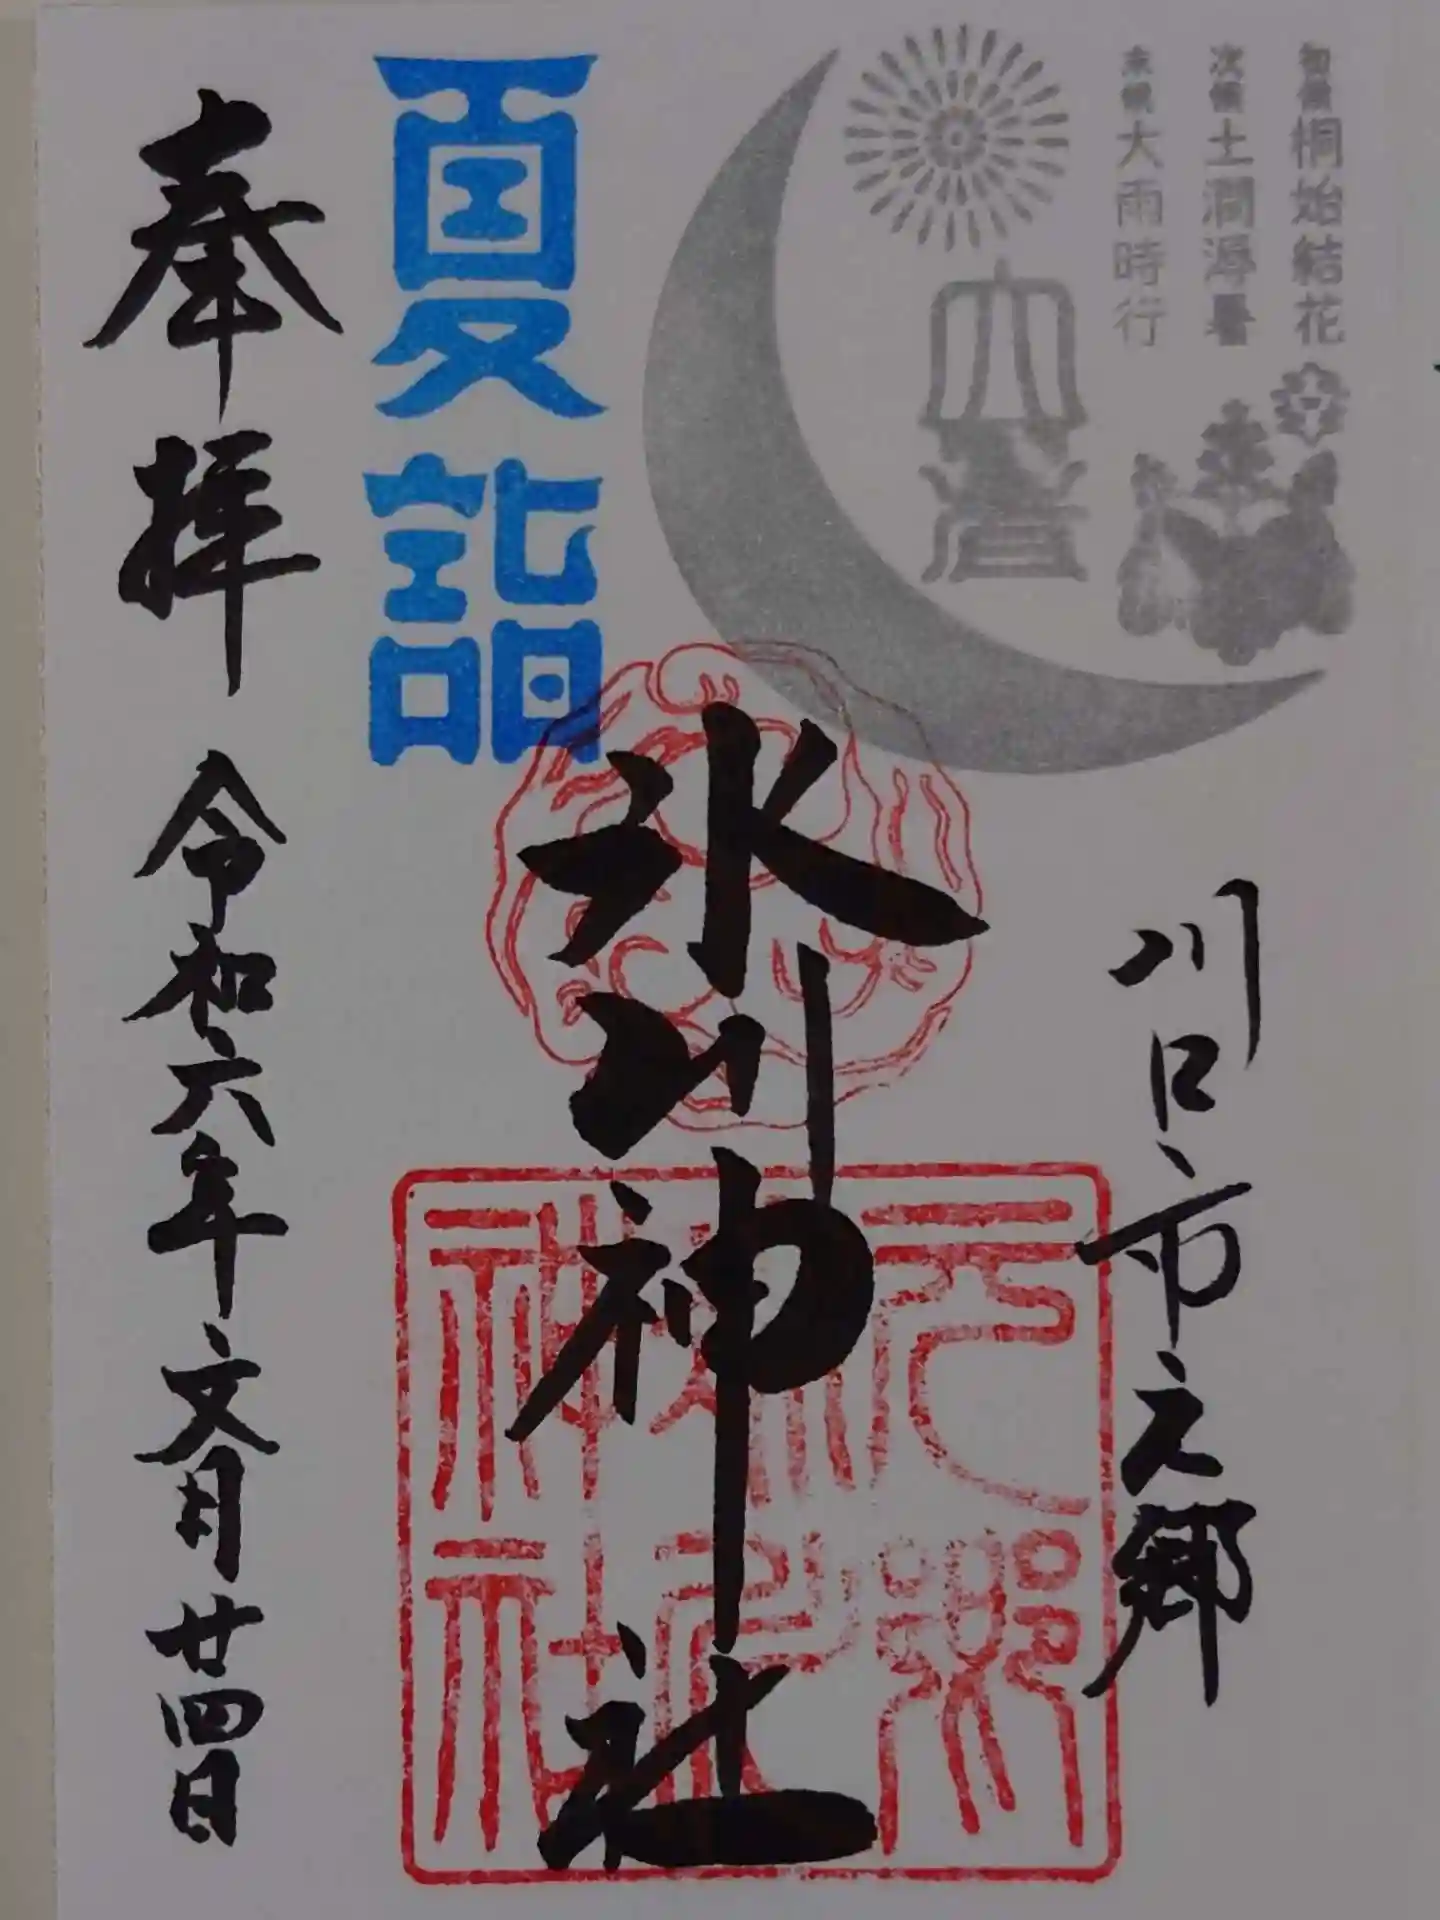 初候 桐始結花
次候 土潤溽暑
末候 大雨時行
大暑
川口市之郷
氷川神社
元郷氷川神社
夏詣
奉拝
令和六年文月廿四日